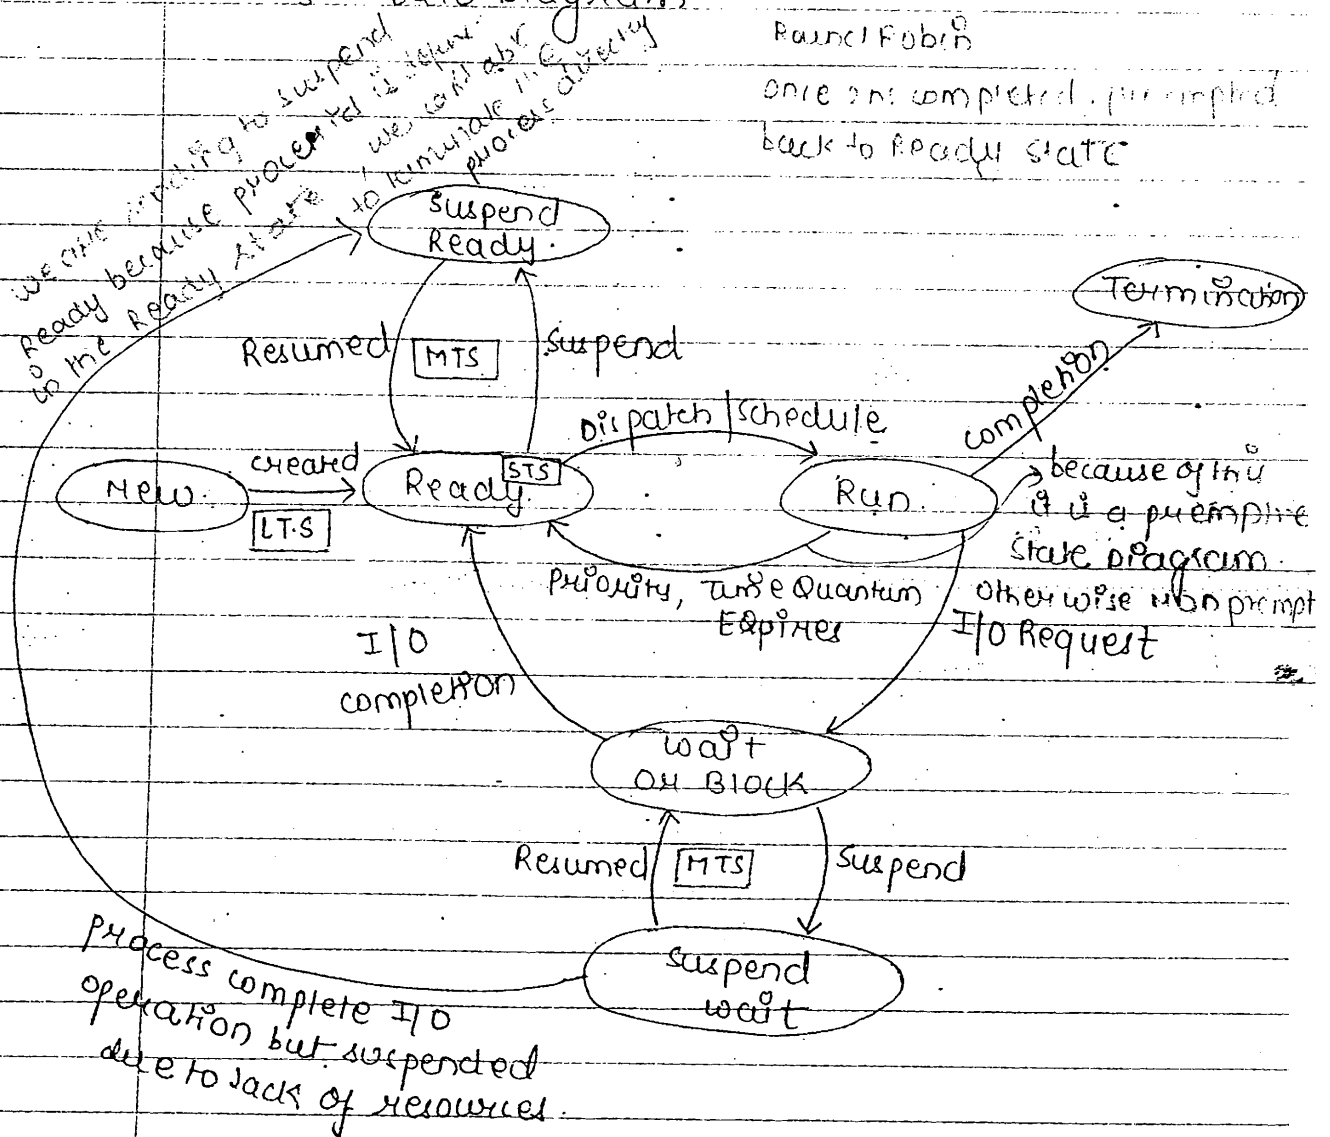 Diagram
Round Robin
once completed. preempted
back to Ready state
we are sending to suspend
Ready because process is
in the Ready state, we
to terminate the
process directly
Suspend
Ready.
Termination
Resumed
MTS
Suspend
completion
Dispatch/Schedule
New.
created
LTS
Ready
STS
Run.
because of this
it is a premptive
State Diagram.
otherwise nonprempt
Priority, Time Quantum
Expires
I/O Request
I/O
completion
wait
or Block
Resumed
MTS
suspend
suspend
wait
process complete I/O
operation but suspended
due to lack of resources.